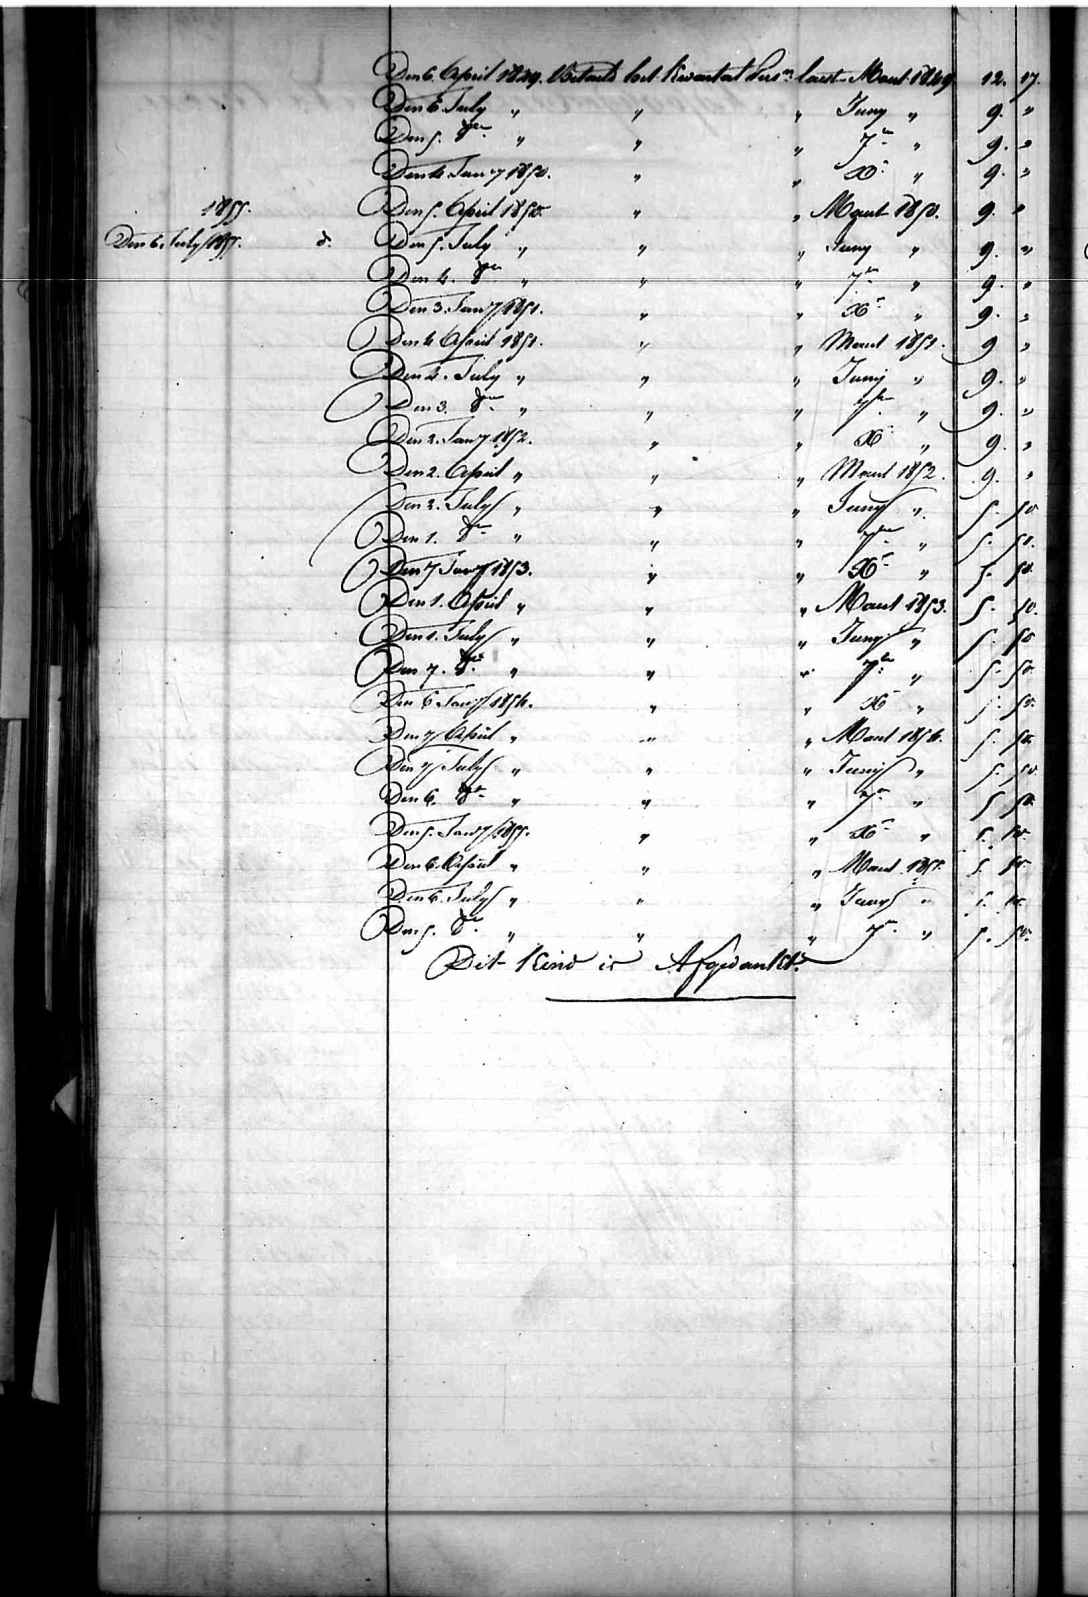 Den 6 April 1849. Betaald het Kwartaal Pers.n laast Maart 1849 12. 17.
Den 6. July " " " Juny " 9. "
Den 5. 8er " " " 7er " 9. "
Den 4 Jany 1850. " " Xr " 9. "
1855. Den 5. April 1850. " " Maart 1850. 9. "
Den 6. July 1855. d. Den 5. July " " " Juny " 9. "
Den 4. 8er " " " 7er " 9. "
Den 3. Jany 1851. " " Xr " 9. "
Den 4 April 1851. " " Maart 1851. 9 "
Den 4. July " " " Juny " 9. "
Den 3. 8er " " " 7er " 9. "
Den 2. Jany 1852. " " Xr " 9. "
Den 2. April " " " Maart 1852. 9. "
Den 2. July " " " Juny " 5. 50.
Den 1. 8er " " " 7er " 5. 50.
Den 7 Jany 1853. " " Xr " 5. 50.
Den 1. April " " " Maart 1853. 5. 50.
Den 1. July " " " Juny " 5. 50
Den 7. 8er " " " 7er " 5. 50.
Den 6 Jany 1854. " " Xr " 5. 50.
Den 7 April " " " Maart 1854. 5. 50.
Den 7 July " " " Juny " 5. 50.
Den 6. 8er " " " 7er " 5 50.
Den 5. Jany 1855. " " Xr " 5. 50.
Den 6. April " " " Maart 1855. 5. 50.
Den 6. July " " " Juny " 5. 50.
Den 5. 8er " " " 7er " 5. 50.
Dit Kind is Afgedankt.